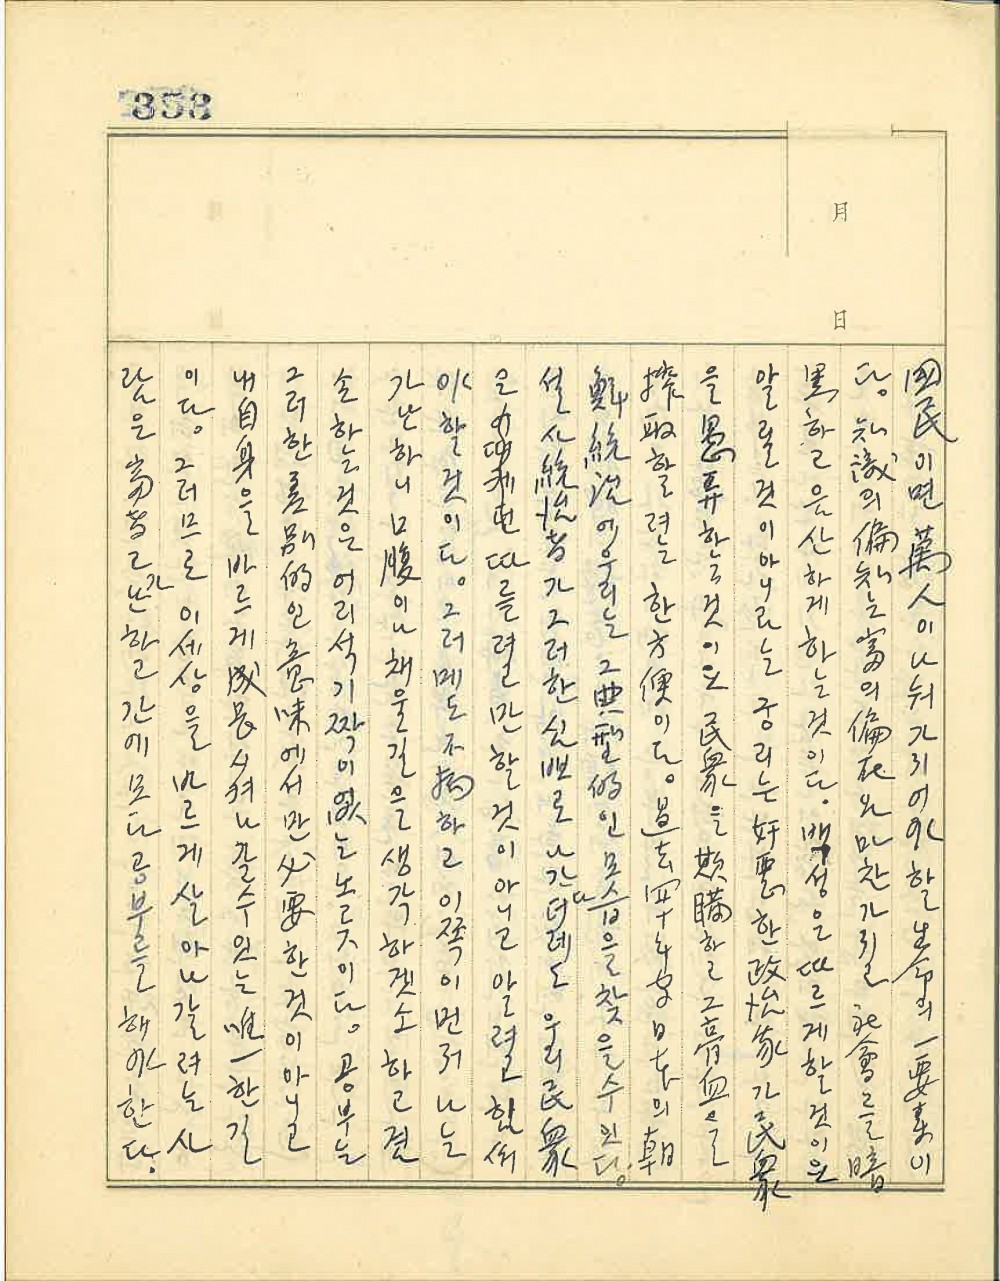 353
月
日
國民이면 萬人이 나눠가지어야할 生命의 一要素이
다. 知識의 偏知는 富의 偏在와 마찬가지로 社會를 暗
黑하고 음산하게 하는것이다. 백성은 따르게할것이요
알릴것이아니라는 궁리는 奸惡한 政治家가 民衆
을 愚弄하는것이요 民衆을 欺瞞하고 그 膏血을
搾取할려는 한 方便이다. 過去 四十年間 日本의 朝
鮮統治에 우리는 그 典型的인 모습을 찾을수 있다.
설사 統治者가 그러한 심뽀로 나간다더레도 우리 民衆
은 따를려만 할것이 아니고 알려고 힘써
야할것이다. 그러메도 不拘하고 이쪽이 먼저 나는
가난하니 口腹이나 채울길을 생각하겠소 하고 결
손하는것은 어리석기 짝이 없는 노릇이다. 공부는
그러한 差別的인 意味에서만 必要한것이 아니고
내 自身을 바르게 成長시켜나갈수있는 唯一한 길
이다. 그러므로 이세상을 바르게 살아나갈려는 사
람은 富者고 가난하고 간에 모다 공부를 해야한다.